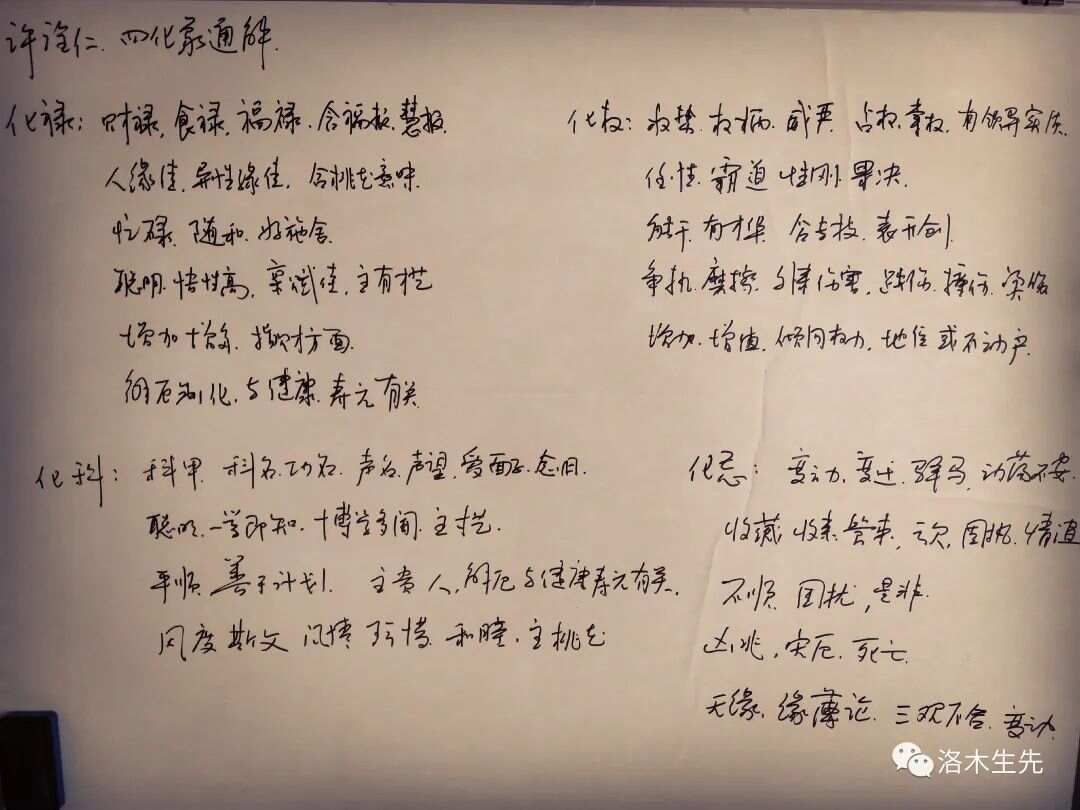 许诠仁、四化最通解、
化禄：财禄，食禄，福禄、含福报、慧报、
人缘佳、异性缘佳，含桃花意味、
忙碌、随和、好施舍、
聪明、悟性高，禀赋佳，主有才艺
增加、增多、指财方面、
解厄制化、与健康、寿元有关、
化权：权柄、威严、占权、掌权，有领导实质、
任性、霸道、性刚、果决、
能干、有才华、含专技、表开创、
争执、摩擦、意外伤害，跌伤、撞伤、
增加、增值，倾向权力，地位或不动产、
化科：科甲、科名、功名、声名、声望，爱面子、念旧、
聪明、一学即知、博学多闻、主才艺、
平顺、善于计划、主贵人，解厄与健康寿元有关、
风度斯文、和睦、主桃花
化忌：变动、变迁、驿马，动荡不安、
收藏、收束、管束，亏欠、固执、惜
不顺、困扰，是非、
凶兆，灾厄、死亡、
无缘、缘薄论、三观不合、变动、
洛木生先